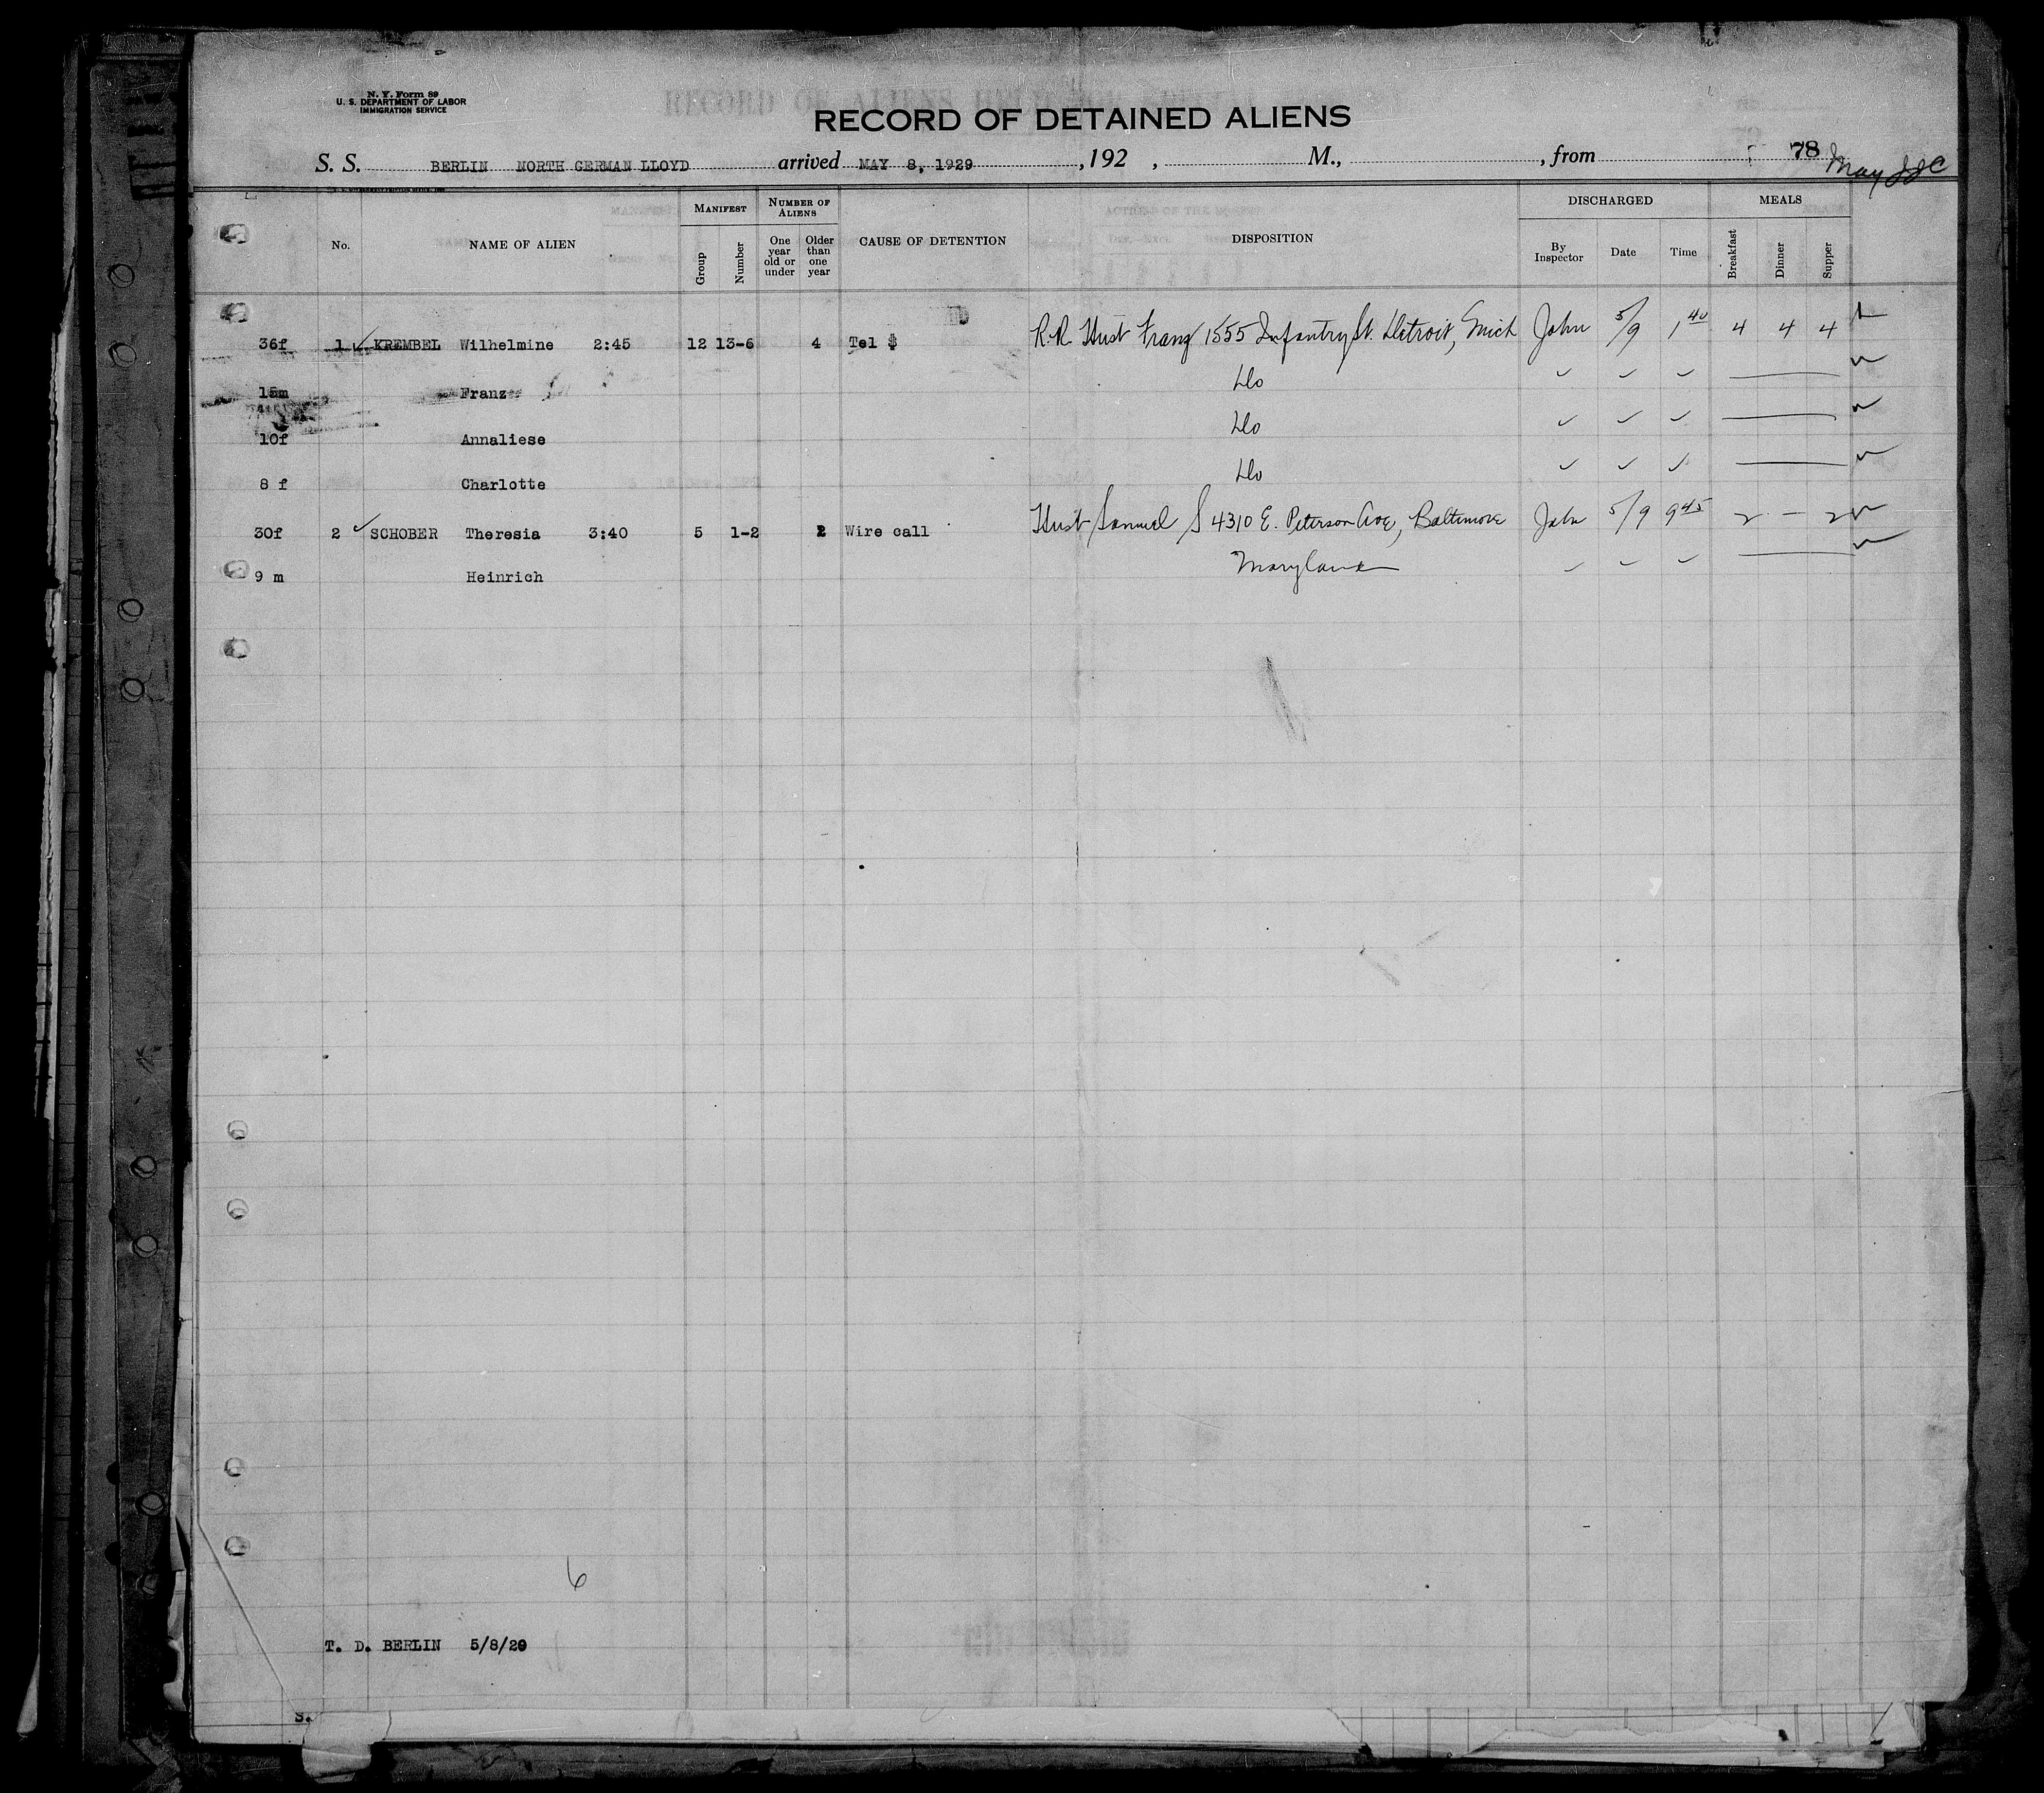 N. Y. Form 89
U. S. DEPARTMENT OF LABOR
IMMIGRATION SERVICE
RECORD OF DETAINED ALIENS
S. S. BERLIN NORTH GERMAN LLOYD arrived MAY 8, 1929 , 192 , M., , from 78 May
No. NAME OF ALIEN MANIFEST Group Number NUMBER OF ALIENS One year old or under Older than one year CAUSE OF DETENTION DISPOSITION DISCHARGED By Inspector Date Time MEALS Breakfast Dinner Supper
36f 1 ✓ KREMBEL Wilhelmine 2:45 12 13-6 4 Tel $ R.R. Hust Franz 1555 Infantry St. Detroit, Mich John 5/9 1 40 4 4 4
15m Franz Do ✓ ✓ ✓
10f Annaliese Do ✓ ✓ ✓
8 f Charlotte Do ✓ ✓ ✓
30f 2 ✓ SCHOBER Theresia 3:40 5 1-2 2 Wire call Hust Samuel S 4310 E. Peterson Ave, Baltimore John 5/9 9 45 2 — 2
9 m Heinrich Maryland ✓ ✓ ✓
6
T. D. BERLIN 5/8/29
S.